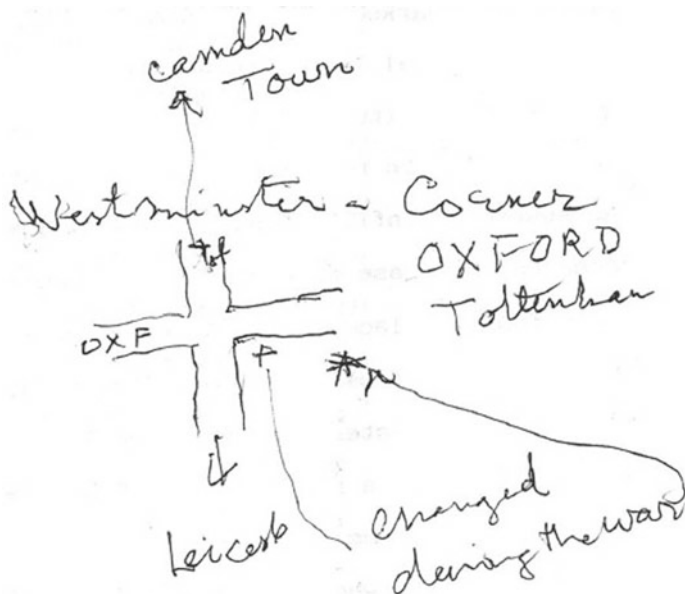 camden
Town
Westminster - Corner
OXFORD
Tottenham
Tot
OXF
Leicest
changed
during the war